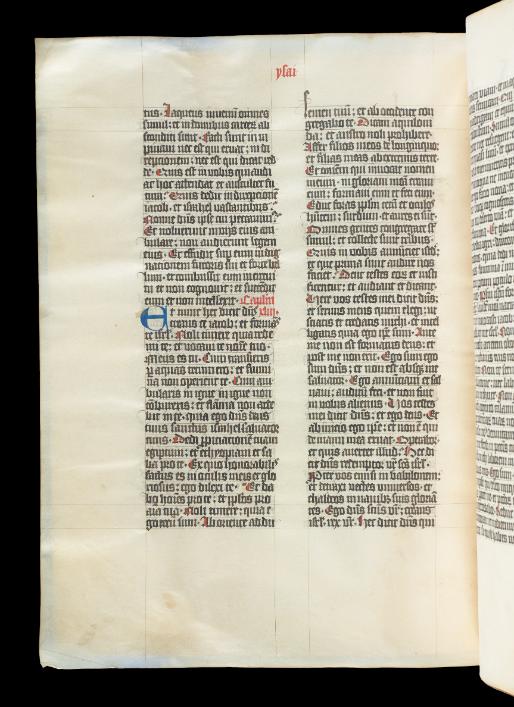 ysai
tus. Laqueus iuuenū omnes
simul: et in domibus carcerū ab
sconditi sunt. Facti sunt in ra
pinam nec est qui eruat: in di
reptionem: nec est qui dicat red
de. Quis est in vobis qui audi
at hoc attendat et auscultet fu
tura. Quis dedit in direptionē
iacob. et israhel vastantibus.
Nonne dn̄s ipse cui peccauim⁹.
Et noluerunt in vijs eius am
bulare: non audierunt legem
eius. Et effudit sup eum indig
nationem furoris sui et forte bel
lum. et combussit eum in circui
tu et non cognouit: et succendit
eum et non intellexit. Capitm̄
Et nunc hec dicit dn̄s xliij.
creans te iacob: et formās
te isrl̄. Noli timere quia rede
mi te: et vocaui te noīe tuo.
Meus es tu. Cum transieris
p aquas tecum ero: et flumi
na non operient te. Cum am
bulaueris in igne in igne non
cōbureris: et flamā non arde
bit in te. quia ego dn̄s deus
tuus sanctus israhel saluator
tuus. Dedi ppiciationē tuam
egiptum: et ethyopiam et sa
ba pro te. Ex quo honorabilis
factus es in oculis meis et glo
riosus: ego dilexi te. Et da
bo hoīes pro te: et ipl̄os pro
aīa tua. Noli timere: quia t
ego tecum sum. Ab oriente addu
semen tuū: et ab occidente con
gregabo te. Dicam aquiloni
da: et austro noli prohibere.
Affer filios meos de longinquo:
et filias meas ab extremis terre.
Et omēm qui inuocat nomen
meum. in gloriam meā creaui
eum: formaui eum et feci eum.
Educ foras ppl̄m cecū et oculos
hn̄tem: surdum. et aures ei sūt.
Omnes gentes congregate sūt
simul: et collecte sunt tribus.
Quis in vobis annūciet istud:
et que prima sunt audire nos
faciet. Dent testes eorū et iusti
ficentur: et audiant et dicant.
Uere vos testes mei dicit dn̄s:
et seruus meus quem elegi: ut
sciatis et credatis michi. et intel
ligatis quia ego ip̄e sum. Ante
me non est formatus deus: et
post me non erit. Ego sum ego
sum dn̄s: et non est absq̄ me
saluator. Ego annūciaui et sal
uaui: auditū feci. et non fuit
in vobis alienus. Uos testes
mei dicit dn̄s: et ego deus. Et
ab inicio ego ipse: et non ē qui
de manu mea eruat. Operabor.
et quis auertet illud. Hec di
cit dn̄s redemptor vr̄ scs̄ isrl̄.
Propter vos emisi in babilonem:
et detraxi vectes vniuersos. et
chaldeos in nauibus suis glorian
tes. Ego dn̄s scūs vr̄: creans
isrl̄. rex vr̄. Hec dicit dn̄s qui